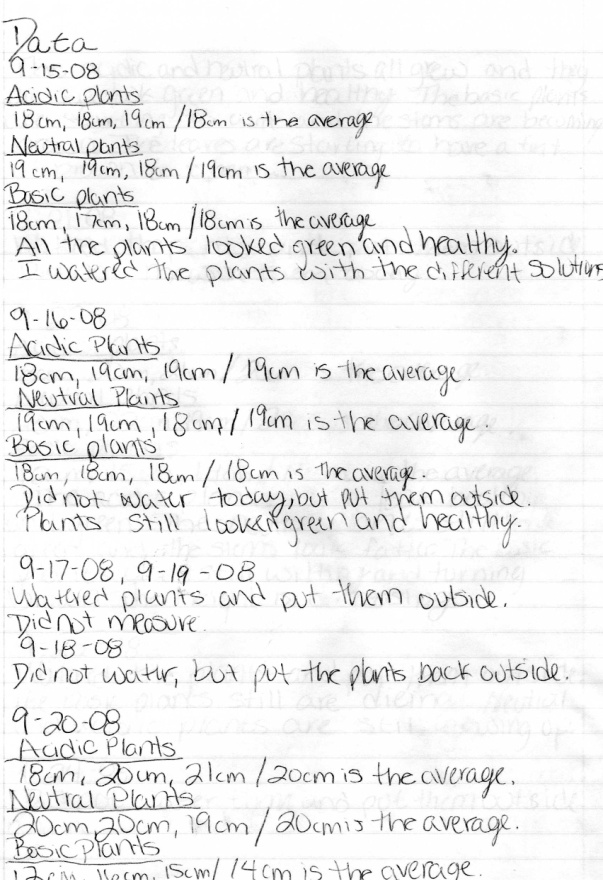 Data
9-15-08
Acidic plants
18cm, 18cm, 19cm / 18cm is the average
Neutral plants
19cm, 19cm, 18cm / 19cm is the average
Basic plants
18cm, 17cm, 18cm / 18cm is the average
All the plants looked green and healthy.
I watered the plants with the different solutions
9-16-08
Acidic Plants
18cm, 19cm, 19cm / 19cm is the average.
Neutral Plants
19cm, 19cm, 18cm / 19cm is the average.
Basic plants
18cm, 18cm, 18cm / 18cm is the average.
Did not water today, but put them outside.
Plants still looken green and healthy.
9-17-08, 9-19-08
Watered plants and put them outside.
Did not measure.
9-18-08
Did not water, but put the plants back outside.
9-20-08
Acidic Plants
18cm, 20cm, 21cm / 20cm is the average.
Neutral Plants
20cm, 20cm, 19cm / 20cm is the average.
Basic Plants
15cm / 14cm is the average.